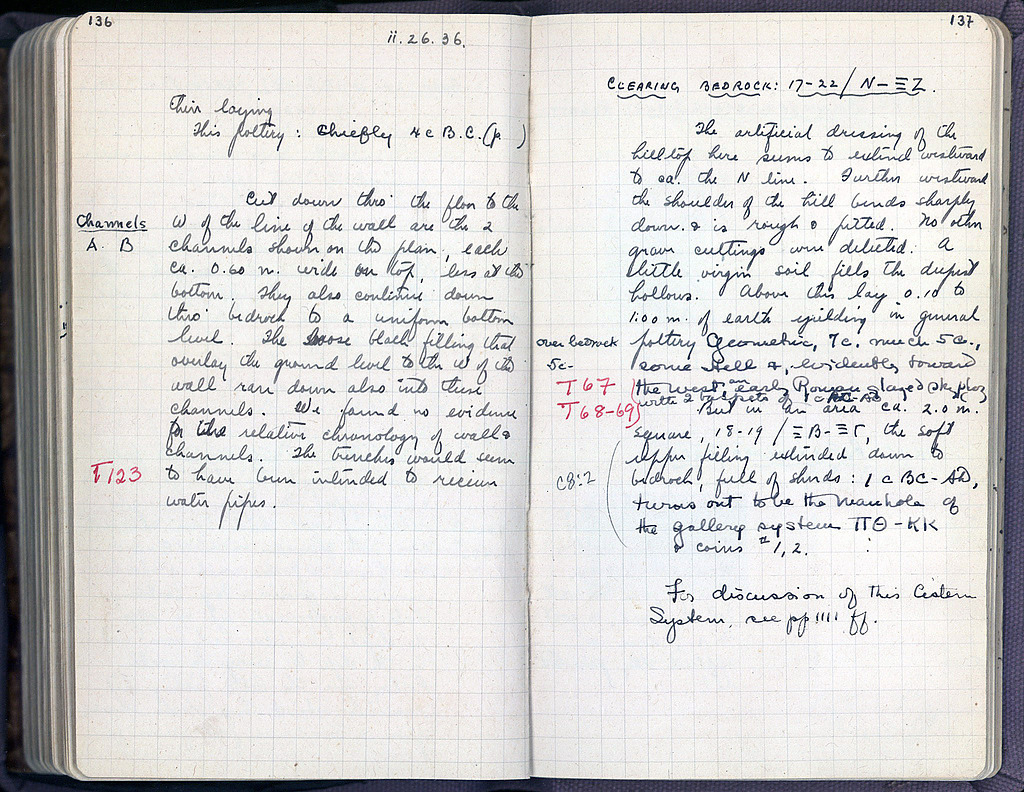 136
ii.26.36.
their laying
This pottery: Chiefly 4c B.C. (p )
Cut down thro' the floor to the
Channels
W of the line of the wall are the 2
A. B
channels shown on the plan, each
ca. 0.60 m. wide on top, less at the
bottom. They also continue down
thro' bedrock to a uniform bottom
level. The loose black filling that
overlay the ground level to the W of the
wall ran down also into these
channels. We found no evidence
for the relative chronology of wall &
channels. The trenches would seem
T123
to have been intended to receive
water pipes.
137
CLEARING BEDROCK: 17-22 / N-ΞZ.
The artificial dressing of the
hilltop here seems to extend westward
to ca. the N line. Further westward
the shoulder of the hill bends sharply
down & is rough & pitted. No other
grave cuttings were detected. A
little virgin soil fills the deepest
hollows. Above this lay 0.10 to
1.00 m. of earth yielding in general
over bedrock
pottery Geometric, 7c. much 5c.,
5c-
some Hell &, evidently toward
T67
the west, an early Roman glazed skyphos
with 2 of 1c
T68-69
But in an area ca. 2.0 m.
square, 18-19 / ΞB-ΞΓ, the soft
upper filling extended down to
C8:2
bedrock, full of sherds: 1c BC-AD,
turns out to be the manhole of
the gallery system ΠΘ-KK
& coins #1,2.
For discussion of this Cistern
System, see pp 1111 ff.